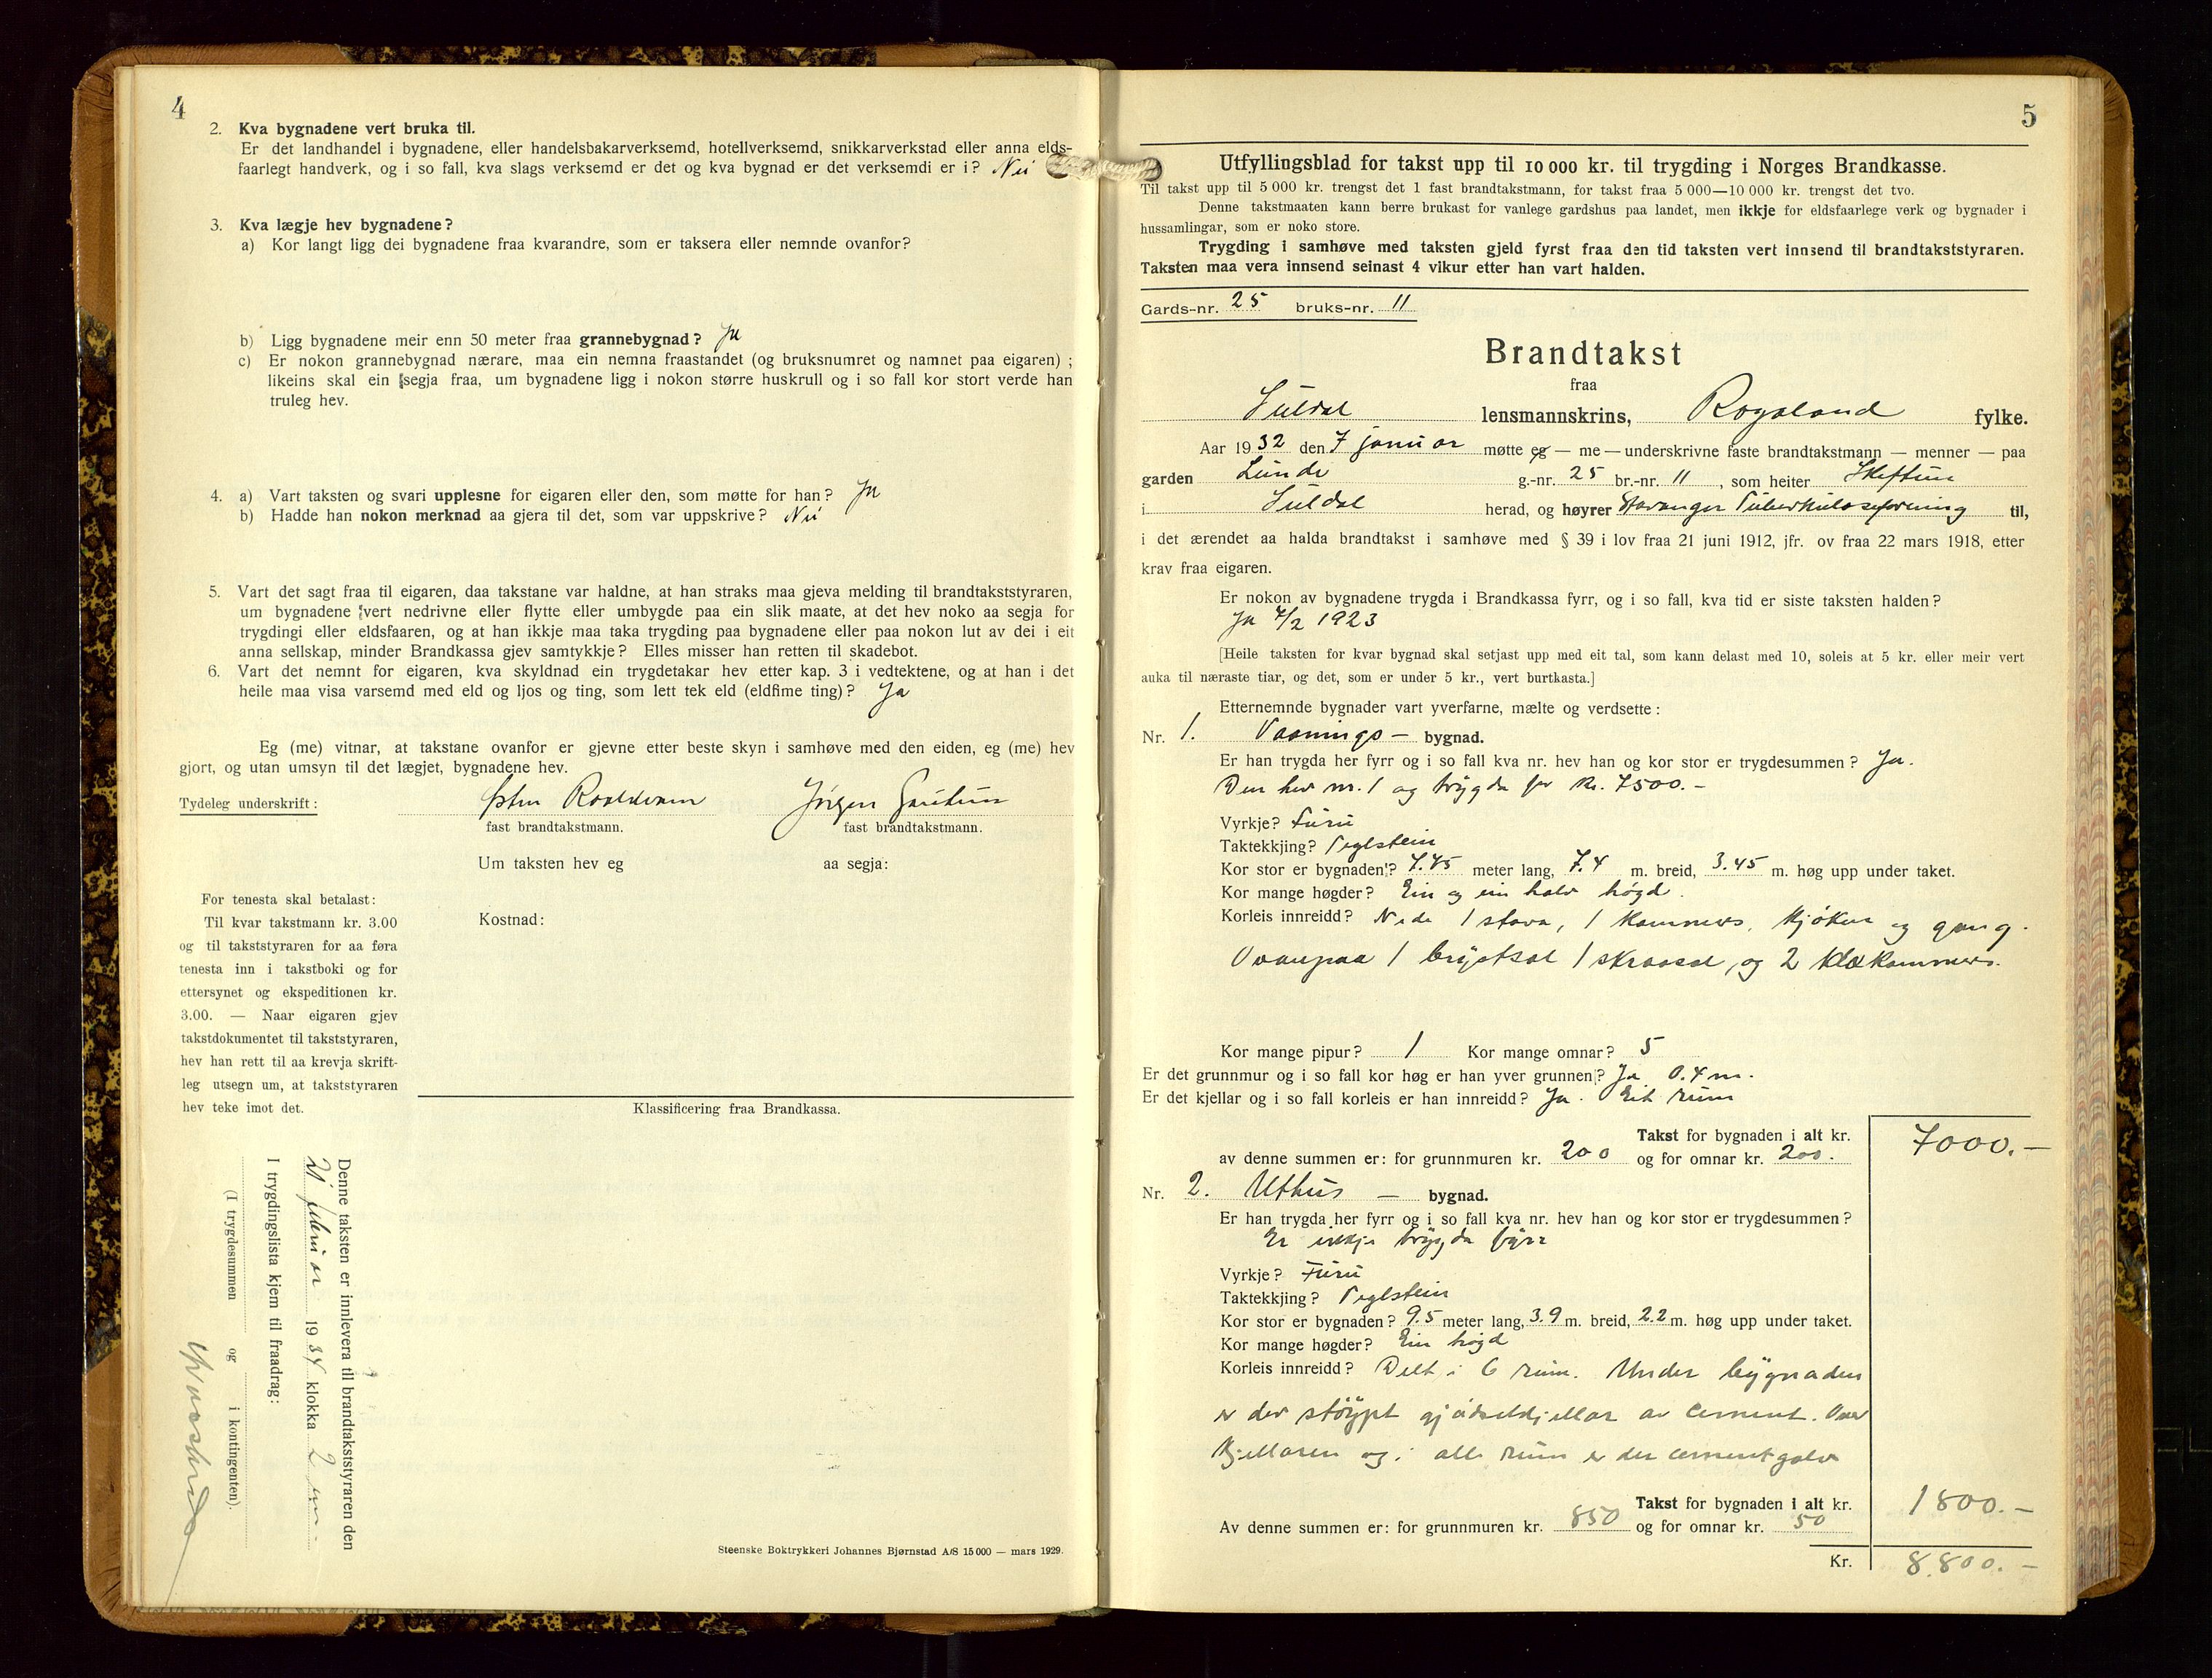 4
2. Kva bygnadene vert bruka til.
Er det landhandel i bygnadene, eller handelsbakarverksemd, hotellverksemd, snikkarverkstad eller anna elds-
faarlegt handverk, og i so fall, kva slags verksemd er det og kva bygnad er det verksemdi er i? Nei
3. Kva lægje hev bygnadene?
a) Kor langt ligg dei bygnadene fraa kvarandre, som er taksera eller nemnde ovanfor?
b) Ligg bygnadene meir enn 50 meter fraa grannebygnad? Ja
c) Er nokon grannebygnad nærare, maa ein nemna fraastandet (og bruksnumret og namnet paa eigaren) ;
likeins skal ein segja fraa, um bygnadene ligg i nokon større huskrull og i so fall kor stort verde han
truleg hev.
4. a) Vart taksten og svari upplesne for eigaren eller den, som møtte for han? Ja
b) Hadde han nokon merknad aa gjera til det, som var uppskrive? Nei
5. Vart det sagt fraa til eigaren, daa takstane var haldne, at han straks maa gjeva melding til brandtakststyraren,
um bygnadene vert nedrivne eller flytte eller umbygde paa ein slik maate, at det hev noko aa segja for
trygdingi eller eldsfaaren, og at han ikkje maa taka trygding paa bygnadene eller paa nokon lut av dei i eit
anna sellskap, minder Brandkassa gjev samtykkje? Elles misser han retten til skadebot.
6. Vart det nemnt for eigaren, kva skyldnad ein trygdetakar hev etter kap. 3 i vedtektene, og at han i det
heile maa visa varsemd med eld og ljos og ting, som lett tek eld (eldfime ting)? Ja
Eg (me) vitnar, at takstane ovanfor er gjevne etter beste skyn i samhøve med den eiden, eg (me) hev
gjort, og utan umsyn til det lægjet, bygnadene hev.
Tydeleg underskrift: Østen Roaldkvam Jørgen Gautun
fast brandtakstmann. fast brandtakstmann.
Um taksten hev eg aa segja:
For tenesta skal betalast:
Til kvar takstmann kr. 3.00
og til takststyraren for aa føra
tenesta inn i takstboki og for
ettersynet og ekspeditionen kr.
3.00. — Naar eigaren gjev
takstdokumentet til takststyraren,
hev han rett til aa krevja skrift-
leg utsegn um, at takststyraren
hev teke imot det.
Kostnad:
Klassificering fraa Brandkassa.
Denne taksten er innlevera til brandtakststyraren den
1934 klokka 2
I trygdingslista kjem til fraadrag:
(I trygdesummen og i kontingenten).
Steenske Boktrykkeri Johannes Bjørnstad A/S 15 000 — mars 1929.
5
Utfyllingsblad for takst upp til 10 000 kr. til trygding i Norges Brandkasse.
Til takst upp til 5 000 kr. trengst det 1 fast brandtakstmann, for takst fraa 5 000—10 000 kr. trengst det tvo.
Denne takstmaaten kann berre brukast for vanlege gardshus paa landet, men ikkje for eldsfaarlege verk og bygnader i
hussamlingar, som er noko store.
Trygding i samhøve med taksten gjeld fyrst fraa den tid taksten vert innsend til brandtakststyraren.
Taksten maa vera innsend seinast 4 vikur etter han vart halden.
Gards-nr. 25 bruks-nr. 11
Brandtakst
fraa
Suldal lensmannskrins, Rogaland fylke.
Aar 1932 den 7 januar møtte eg — me — underskrivne faste brandtakstmann — menner — paa
garden Lunde g.-nr. 25 br.-nr. 11, som heiter Heftun
i Suldal herad, og høyrer Stavanger Tuberkuloseforening til,
i det ærendet aa halda brandtakst i samhøve med § 39 i lov fraa 21 juni 1912, jfr. ov fraa 22 mars 1918, etter
krav fraa eigaren.
Er nokon av bygnadene trygda i Brandkassa fyrr, og i so fall, kva tid er siste taksten halden?
Ja 7/2 1923
[Heile taksten for kvar bygnad skal setjast upp med eit tal, som kann delast med 10, soleis at 5 kr. eller meir vert
auka til næraste tiar, og det, som er under 5 kr., vert burtkasta.]
Etternemnde bygnader vart yverfarne, mælte og verdsette:
Nr. 1. Vaanings — bygnad.
Er han trygda her fyrr og i so fall kva nr. hev han og kor stor er trygdesummen? Ja.
Den hev nr. 1 og trygda for kr. 7500.-
Vyrkje? Furu
Taktekkjing? Teglstein
Kor stor er bygnaden? 7.45 meter lang, 7.4 m. breid, 3.45 m. høg upp under taket.
Kor mange høgder? Ein og ein halv høgd.
Korleis innreidd? Nede 1 stova, 1 kammers, kjøken og gang.
Ovanpaa 1 brystsal 1 skraasal, og 2 klækammers.
Kor mange pipur? 1 Kor mange omnar? 5
Er det grunnmur og i so fall kor høg er han yver grunnen? Ja 0.4 m.
Er det kjellar og i so fall korleis er han innreidd? Ja. Eit rum
Takst for bygnaden i alt kr. 7000.—
av denne summen er: for grunnmuren kr. 200 og for omnar kr. 200.
Nr. 2. Uthus — bygnad.
Er han trygda her fyrr og i so fall kva nr. hev han og kor stor er trygdesummen?
Er ikkje trygda fyrr
Vyrkje? Furu
Taktekkjing? Teglstein
Kor stor er bygnaden? 9.5 meter lang, 3.9 m. breid, 2.2 m. høg upp under taket.
Kor mange høgder? Ein høgd
Korleis innreidd? Delt i 6 rum. Under bygnaden
er der støypt gjødselkjellar av cement. Over
kjellaren og i alle rum er der cementgolv
Takst for bygnaden i alt kr. 1800.—
Av denne summen er: for grunnmuren kr. 850 og for omnar kr. 50
Kr. 8.800.—